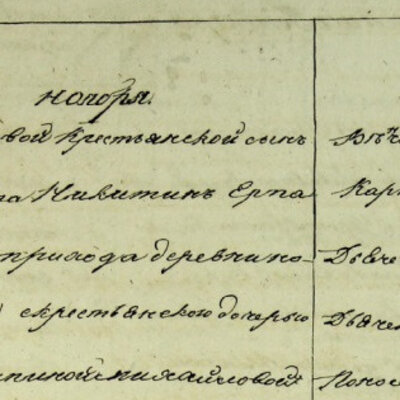 ноября.
вой крестьянской сынъ Вѣч
на Никитинъ Ерпа Кар
прихода деревни но- Дьяче
скрестьянскою дочерью Дьячек
пиной михайловой Поно